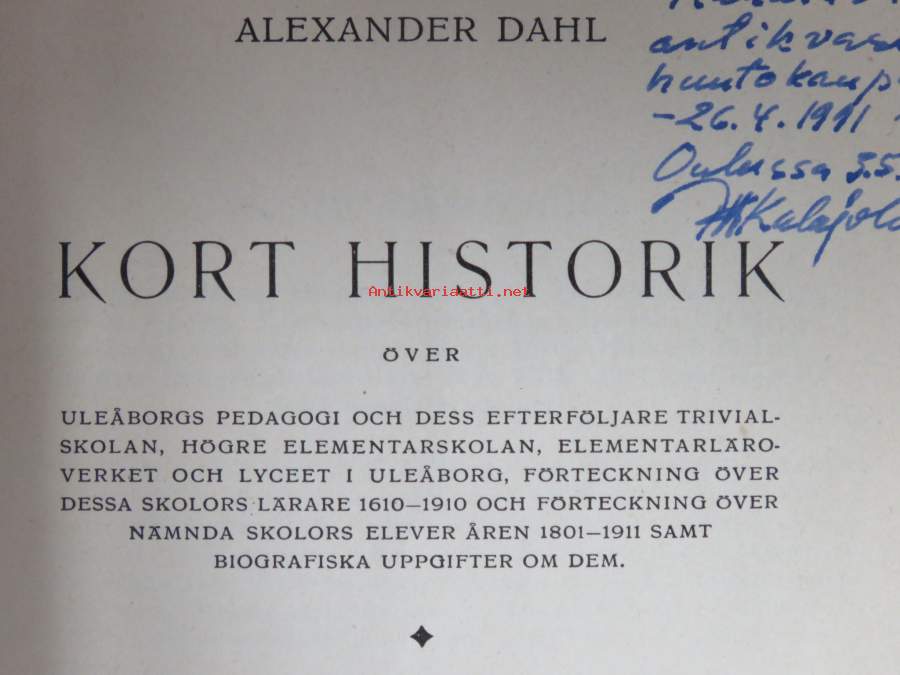 ALEXANDER DAHL
antikvaa
huutokaup
-26.4.1991
Oulussa 3.5.
KORT HISTORIK
Antikvariaatti.net
ÖVER
ULEÅBORGS PEDAGOGI OCH DESS EFTERFÖLJARE TRIVIAL-
SKOLAN, HÖGRE ELEMENTARSKOLAN, ELEMENTARLÄRO-
VERKET OCH LYCEET I ULEÅBORG, FÖRTECKNING ÖVER
DESSA SKOLORS LÄRARE 1610—1910 OCH FÖRTECKNING ÖVER
NÄMNDA SKOLORS ELEVER ÅREN 1801—1911 SAMT
BIOGRAFISKA UPPGIFTER OM DEM.